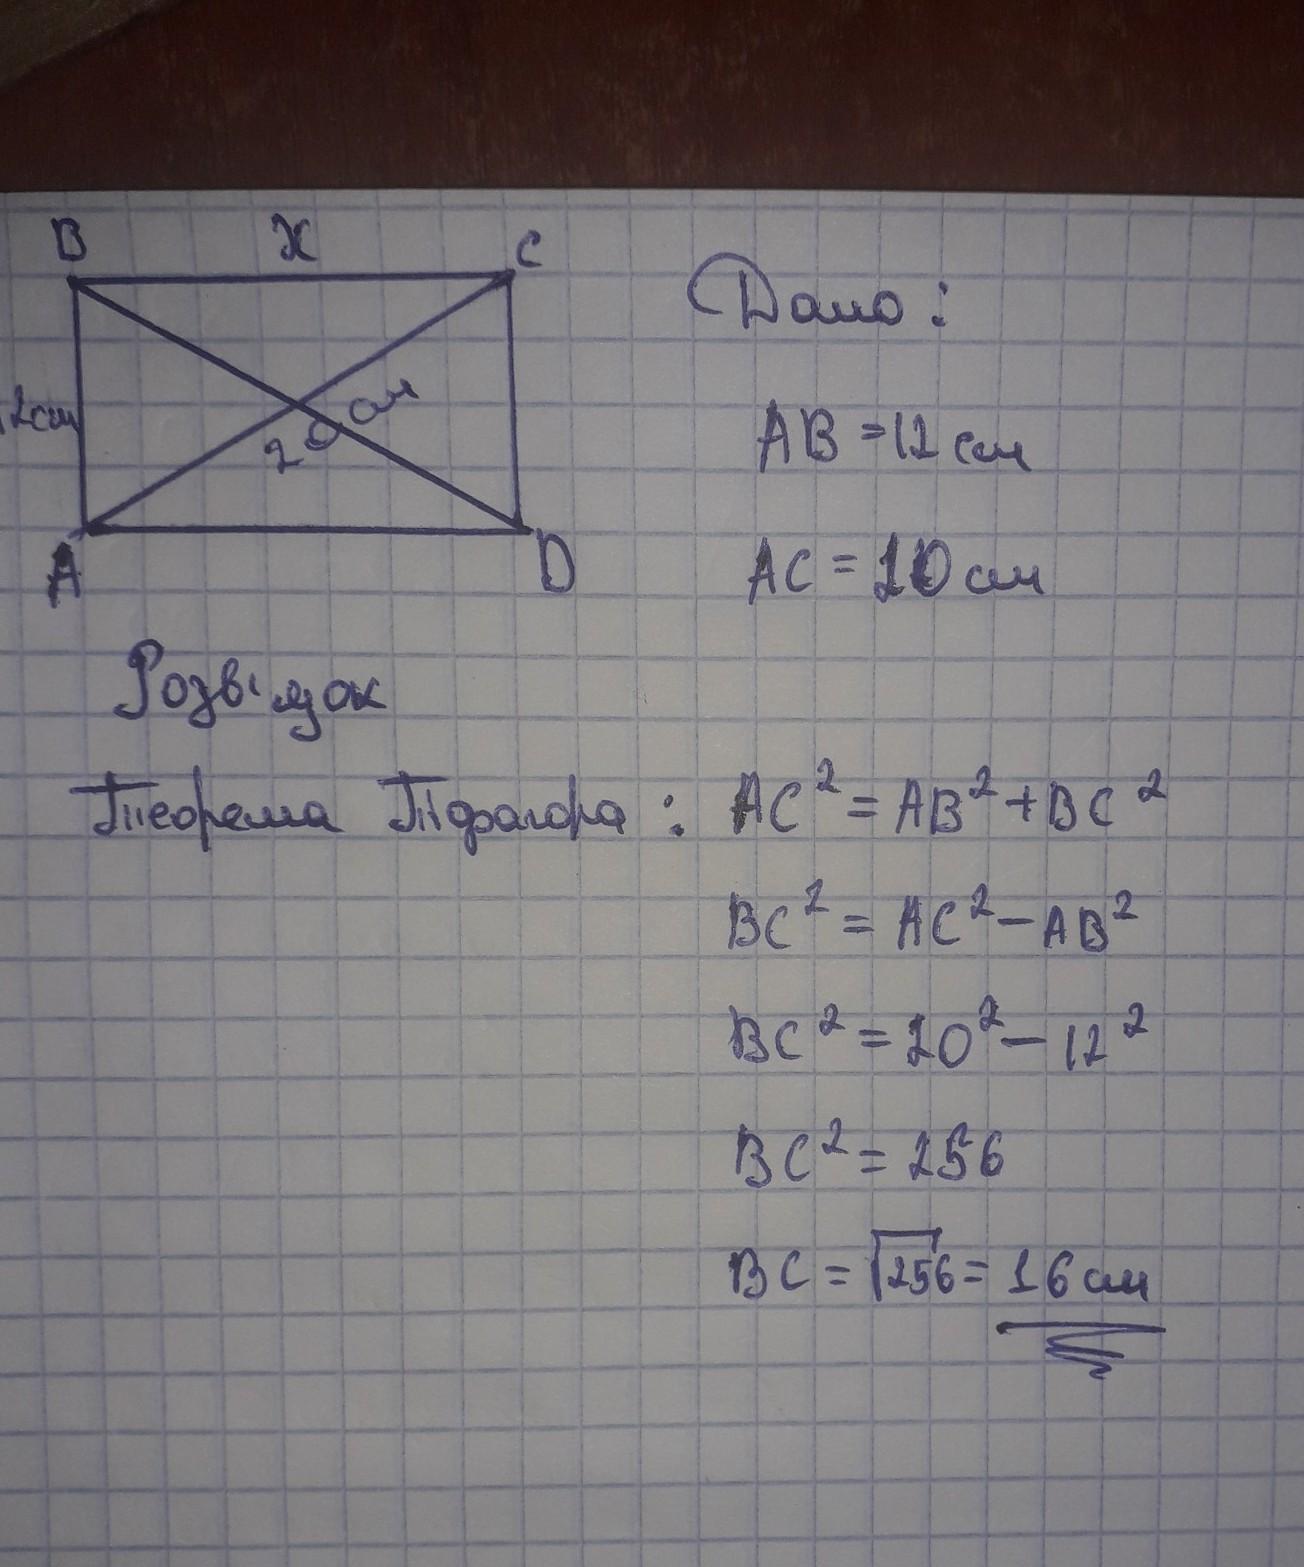 B x C
12см
20 см
A D
Дано:
AB = 12 см
AC = 20 см
Розв'язок
Теорема Піфагора: AC² = AB² + BC²
BC² = AC² - AB²
BC² = 20² - 12²
BC² = 256
BC = √256 = 16 см